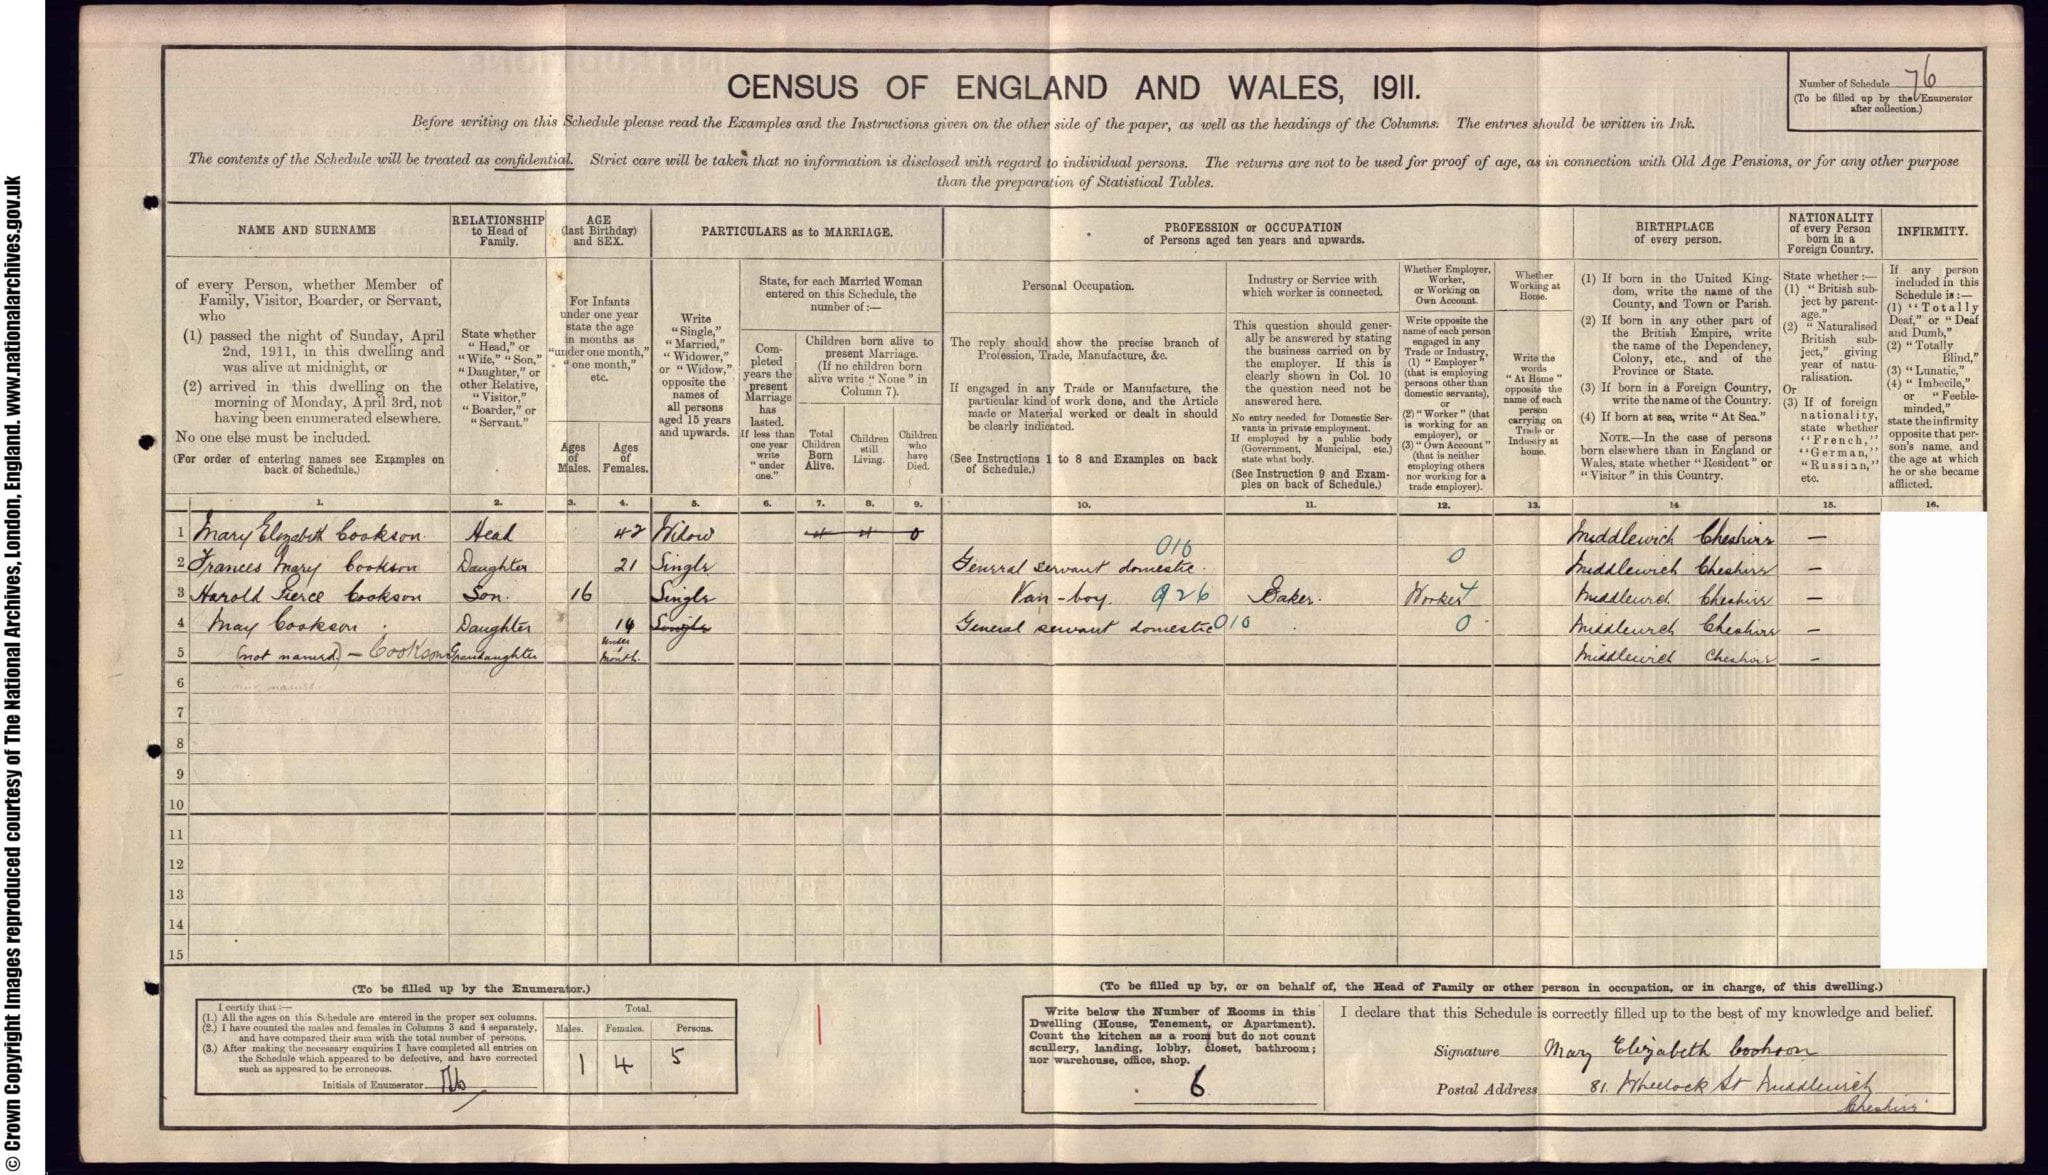 © Crown Copyright Images reproduced courtesy of The National Archives, London, England. www.nationalarchives.gov.uk
CENSUS OF ENGLAND AND WALES, 1911.
Number of Schedule 76
(To be filled up by the Enumerator
after collection.)
Before writing on this Schedule please read the Examples and the Instructions given on the other side of the paper, as well as the headings of the Columns. The entries should be written in Ink.
The contents of the Schedule will be treated as confidential. Strict care will be taken that no information is disclosed with regard to individual persons. The returns are not to be used for proof of age, as in connection with Old Age Pensions, or for any other purpose
than the preparation of Statistical Tables.
NAME AND SURNAME
of every Person, whether Member of
Family, Visitor, Boarder, or Servant,
who
(1) passed the night of Sunday, April
2nd, 1911, in this dwelling and
was alive at midnight, or
(2) arrived in this dwelling on the
morning of Monday, April 3rd, not
having been enumerated elsewhere.
No one else must be included.
(For order of entering names see Examples on
back of Schedule.)
RELATIONSHIP
to Head of
Family.
State whether
"Head," or
"Wife," "Son,"
"Daughter," or
other Relative,
"Visitor,"
"Boarder," or
"Servant."
AGE
(last Birthday)
and SEX.
For Infants
under one year
state the age
in months as
"under one month,"
"one month,"
etc.
Ages
of
Males.
Ages
of
Females.
PARTICULARS as to MARRIAGE.
Write
"Single,"
"Married,"
"Widower,"
or "Widow,"
opposite the
names of
all persons
aged 15 years
and upwards.
State, for each Married Woman
entered on this Schedule, the
number of:—
Com-
pleted
years the
present
Marriage
has
lasted.
If less than
one year
write
"under
one."
Children born alive to
present Marriage.
(If no children born
alive write "None" in
Column 7).
Total
Children
Born
Alive.
Children
still
Living.
Children
who
have
Died.
PROFESSION or OCCUPATION
of Persons aged ten years and upwards.
Personal Occupation.
The reply should show the precise branch of
Profession, Trade, Manufacture, &c.
If engaged in any Trade or Manufacture, the
particular kind of work done, and the Article
made or Material worked or dealt in should
be clearly indicated.
(See Instructions 1 to 8 and Examples on back
of Schedule.)
Industry or Service with
which worker is connected.
This question should gener-
ally be answered by stating
the business carried on by
the employer. If this is
clearly shown in Col. 10
the question need not be
answered here.
No entry needed for Domestic Ser-
vants in private employment.
If employed by a public body
(Government, Municipal, etc.)
state what body.
(See Instruction 9 and Exam-
ples on back of Schedule.)
Whether Employer,
Worker,
or Working on
Own Account.
Write opposite the
name of each person
engaged in any
Trade or Industry,
(1) "Employer"
(that is employing
persons other than
domestic servants),
or
(2) "Worker" (that
is working for an
employer), or
(3) "Own Account"
(that is neither
employing others
nor working for a
trade employer).
Whether
Working at
Home.
Write the
words
"At Home"
opposite the
name of each
person
carrying on
Trade or
Industry at
home.
BIRTHPLACE
of every person.
(1) If born in the United King-
dom, write the name of the
County, and Town or Parish.
(2) If born in any other part of
the British Empire, write
the name of the Dependency,
Colony, etc., and of the
Province or State.
(3) If born in a Foreign Country,
write the name of the Country.
(4) If born at sea, write "At Sea."
NOTE.—In the case of persons
born elsewhere than in England or
Wales, state whether "Resident" or
"Visitor" in this Country.
NATIONALITY
of every Person
born in a
Foreign Country.
State whether:—
(1) "British sub-
ject by parent-
age."
(2) "Naturalised
British sub-
ject," giving
year of natu-
ralisation.
Or
(3) If of foreign
nationality,
state whether
"French,"
"German,"
"Russian,"
etc.
INFIRMITY.
If any person
included in this
Schedule is:—
(1) "Totally
Deaf," or "Deaf
and Dumb,"
(2) "Totally
Blind,"
(3) "Lunatic,"
(4) "Imbecile,"
or "Feeble-
minded,"
state the infirmity
opposite that per-
son's name, and
the age at which
he or she became
afflicted.
1. 2. 3. 4. 5. 6. 7. 8. 9. 10. 11. 12. 13. 14. 15. 16.
1 Mary Elizabeth Cookson. Head 42 Widow 4 4 0 Middlewich Cheshire —
2 Frances Mary Cookson Daughter 21 Single General servant domestic. 010 0 Middlewich Cheshire —
3 Harold Pierce Cookson Son. 16 Single Van-boy. 926 Baker. Worker Middlewich Cheshire —
4 May Cookson Daughter 14 Single General servant domestic 010 0 Middlewich Cheshire —
5 (not named) — Cookson Grandaughter Under 1 Month. Middlewich Cheshire —
6
7
8
9
10
11
12
13
14
15
(To be filled up by the Enumerator.)
I certify that:—
(1.) All the ages on this Schedule are entered in the proper sex columns.
(2.) I have counted the males and females in Columns 3 and 4 separately,
and have compared their sum with the total number of persons.
(3.) After making the necessary enquiries I have completed all entries on
the Schedule which appeared to be defective, and have corrected
such as appeared to be erroneous.
Initials of Enumerator
Total.
Males. Females. Persons.
1 4 5
(To be filled up by, or on behalf of, the Head of Family or other person in occupation, or in charge, of this dwelling.)
Write below the Number of Rooms in this
Dwelling (House, Tenement, or Apartment).
Count the kitchen as a room but do not count
scullery, landing, lobby, closet, bathroom;
nor warehouse, office, shop.
6
I declare that this Schedule is correctly filled up to the best of my knowledge and belief.
Signature Mary Elizabeth Cookson
Postal Address 81. Wheelock St Middlewich
Cheshire